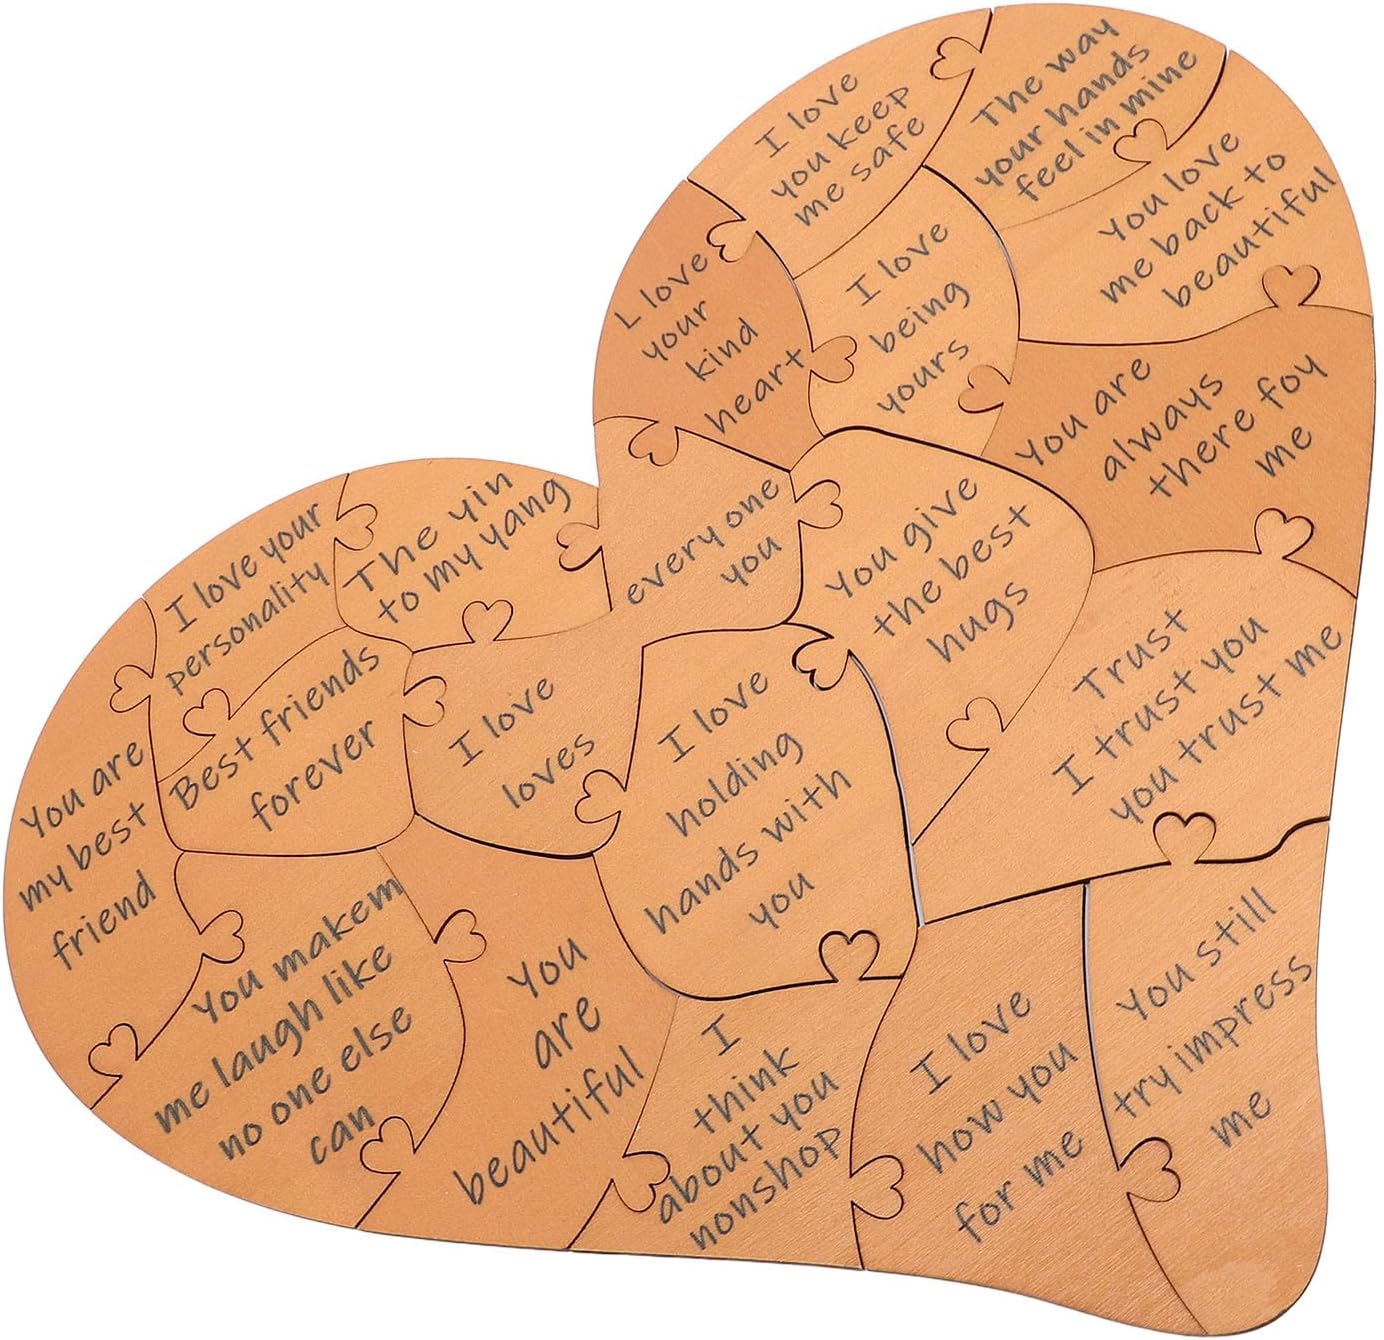 I love
you keep
me safe
The way
your hands
feel in mine
You love
me back to
beautiful
L love
your
kind
heart
I love
being
yours
You are
always
there foy
me
every one
you
You give
the best
hugs
I love your
personality
The yin
to my yang
Best friends
forever
I love
loves
I love
holding
hands with
you
Trust
I trust you
you trust me
You are
my best
friend
You makem
me laugh like
no one else
can
You
are
beautiful
I
think
about you
nonshop
I love
how you
for me
You still
try impress
me